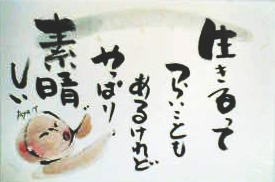 生きるって
つらいことも
あるけれど
やっぱり
素晴しい